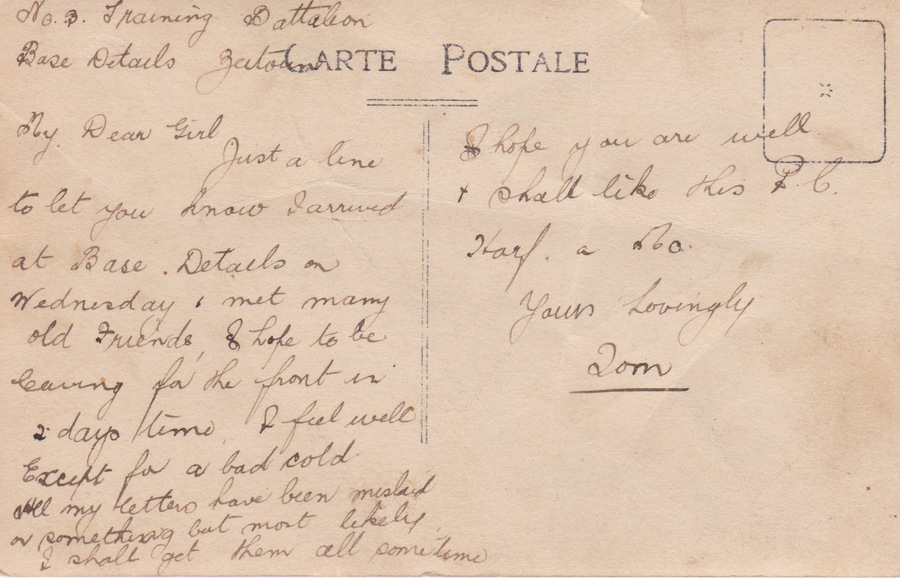 No. 3. Training Battalion
Base Details Zeitoun
CARTE POSTALE
My Dear Girl
Just a line
to let you know I arrived
at Base. Details on
Wednesday & met many
old Friends, I hope to be
leaving for the front in
2 days time, I feel well
Except for a bad cold
All my letters have been mislaid
or something but most likely
I shall get them all sometime
I hope you are well
& shall like this P.C.
Harf. a Mo.
Yours Lovingly
Tom